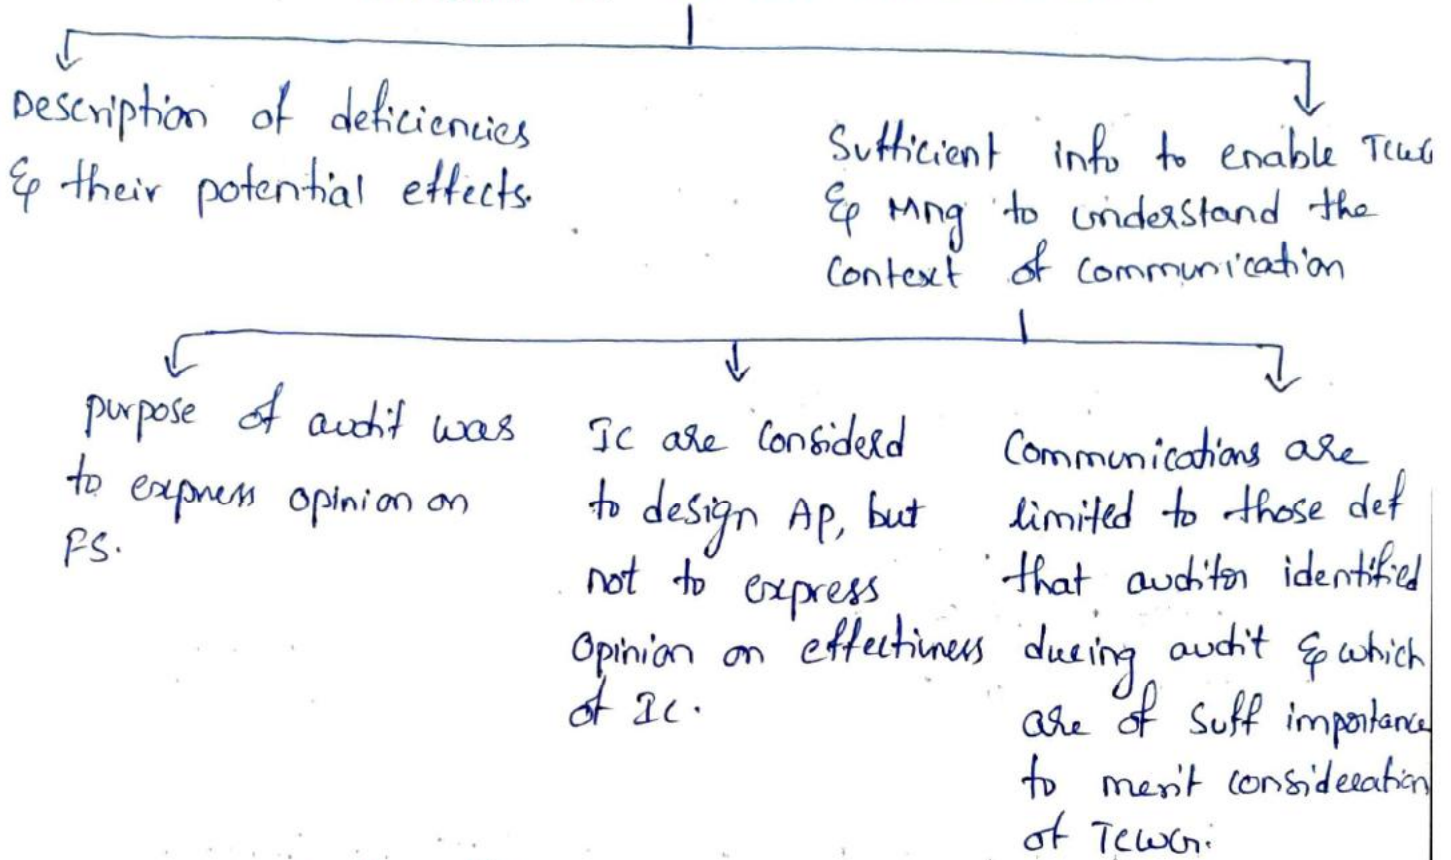 Description of deficiencies
& their potential effects.
Sufficient info to enable TCWG
& Mng to understand the
Context of communication
purpose of audit was
to express opinion on
FS.
IC are Considerd
to design AP, but
not to express
Opinion on effectiveness
of IC.
Communications are
limited to those def
that auditor identified
during audit & which
are of Suff importance
to merit consideration
of TCWG.